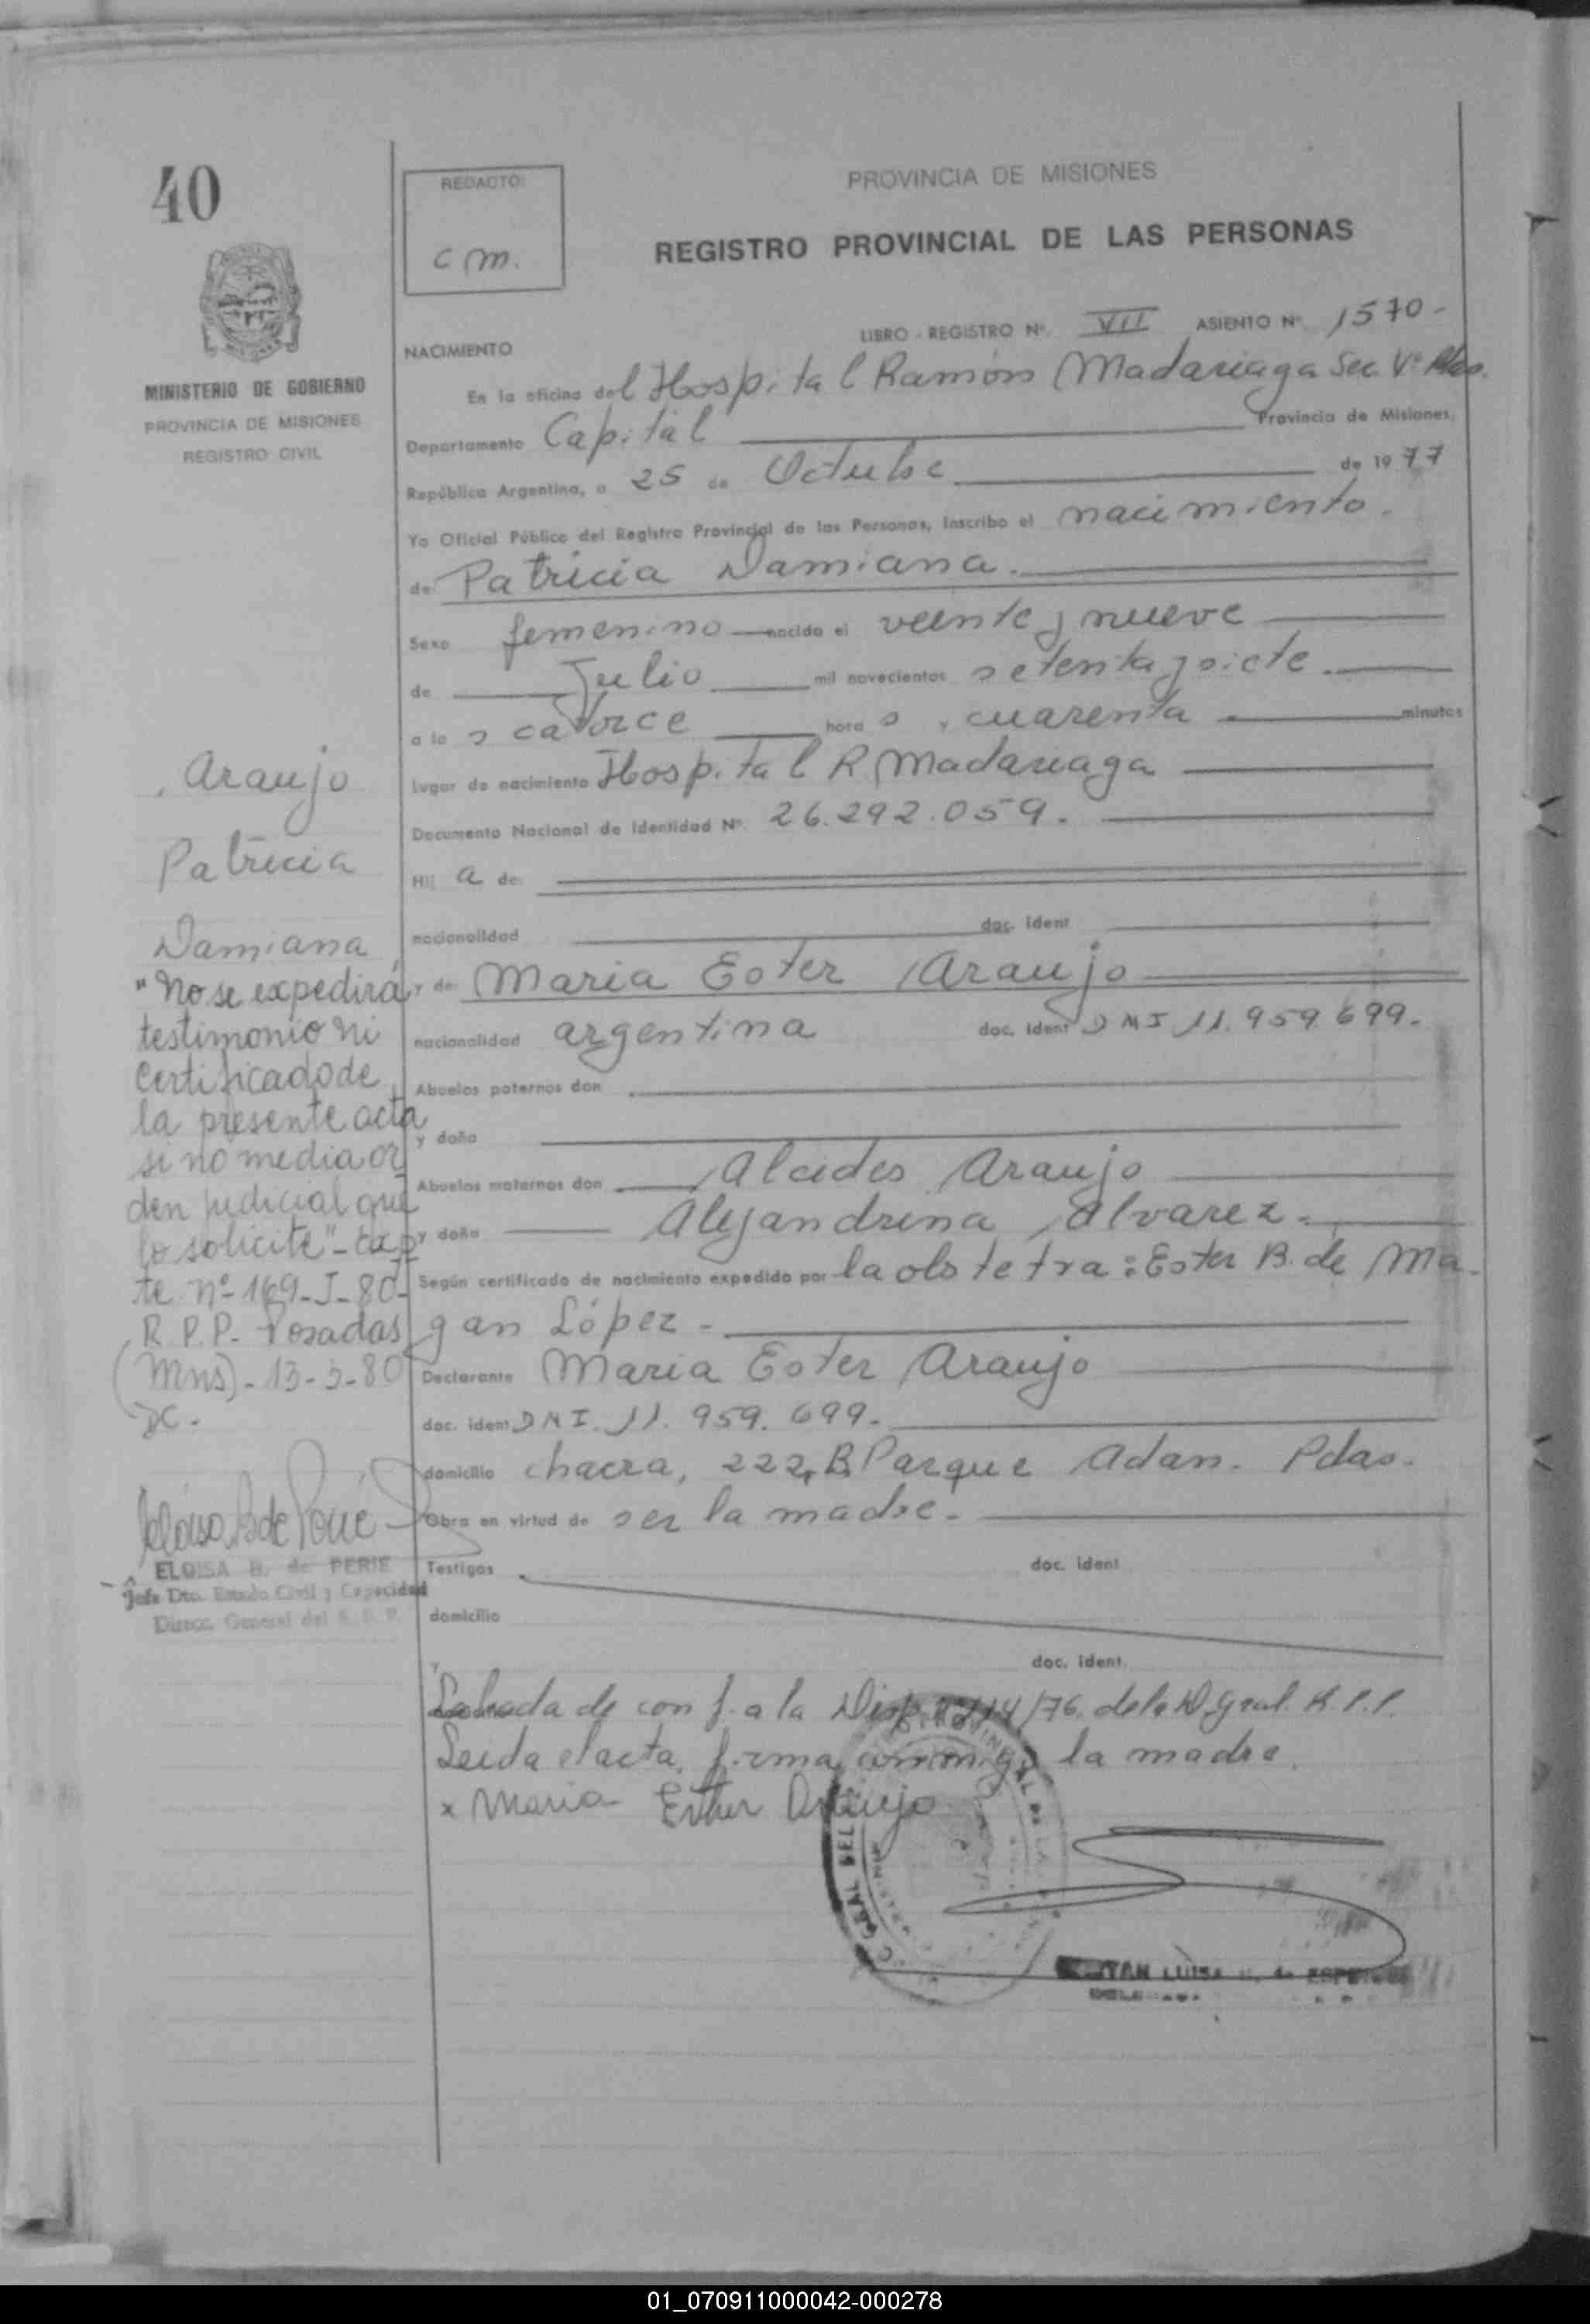 40
REDACTO:
C M.
PROVINCIA DE MISIONES
REGISTRO PROVINCIAL DE LAS PERSONAS
MINISTERIO DE GOBIERNO
PROVINCIA DE MISIONES
REGISTRO CIVIL
LIBRO - REGISTRO Nº. VII ASIENTO Nº. 1570-
NACIMIENTO
En la oficina del Hospital Ramón Madariaga Sec. Vª
Departamento Capital Provincia de Misiones,
República Argentina, a 25 de Octubre de 1977
Yo Oficial Público del Registro Provincial de las Personas, Inscribo el nacimiento.
de: Patricia Damiana.
Sexo femenino nacido el veinte y nueve
de Julio mil novecientos setenta y siete.
a las catorce horas y cuarenta minutos
lugar de nacimiento Hospital R Madariaga
Documento Nacional de Identidad Nº. 26.292.059.
Hija de:
nacionalidad doc. ident
y de Maria Ester Araujo
nacionalidad argentina doc. ident DNI 11.959.699.
Abuelos paternos don
y doña
Abuelos maternos don Alcides Araujo
y doña Alejandrina Alvarez.
Según certificado de nacimiento expedido por la obstetra: Ester B. de Ma-
gan López -
Declarante Maria Ester Araujo
doc. ident DNI. 11. 959. 699.
domicilio chacra, 222, B. Parque Adan. Pdas.
Obra en virtud de ser la madre.
Testigos doc. ident
domicilio
y doc. ident.
Labrada de conf. a la Disp. 14/76. de la D. Gral. R.P.P.
Leida el acta, firma conmigo la madre.
x Maria Esther Araujo
Araujo
Patricia
Damiana
"No se expedirá
testimonio ni
certificado de
la presente acta
si no media or
den judicial que
lo solicite"- Exp
te. nº 169-J-80-
R.P.P. Posadas
(Mns)- 13-3-80
DC.
ELOISA B. de PERIE
Jefe Dto. Estado Civil y Capacidad
Direcc. General del R.P.P.
LUISA
01_070911000042-000278